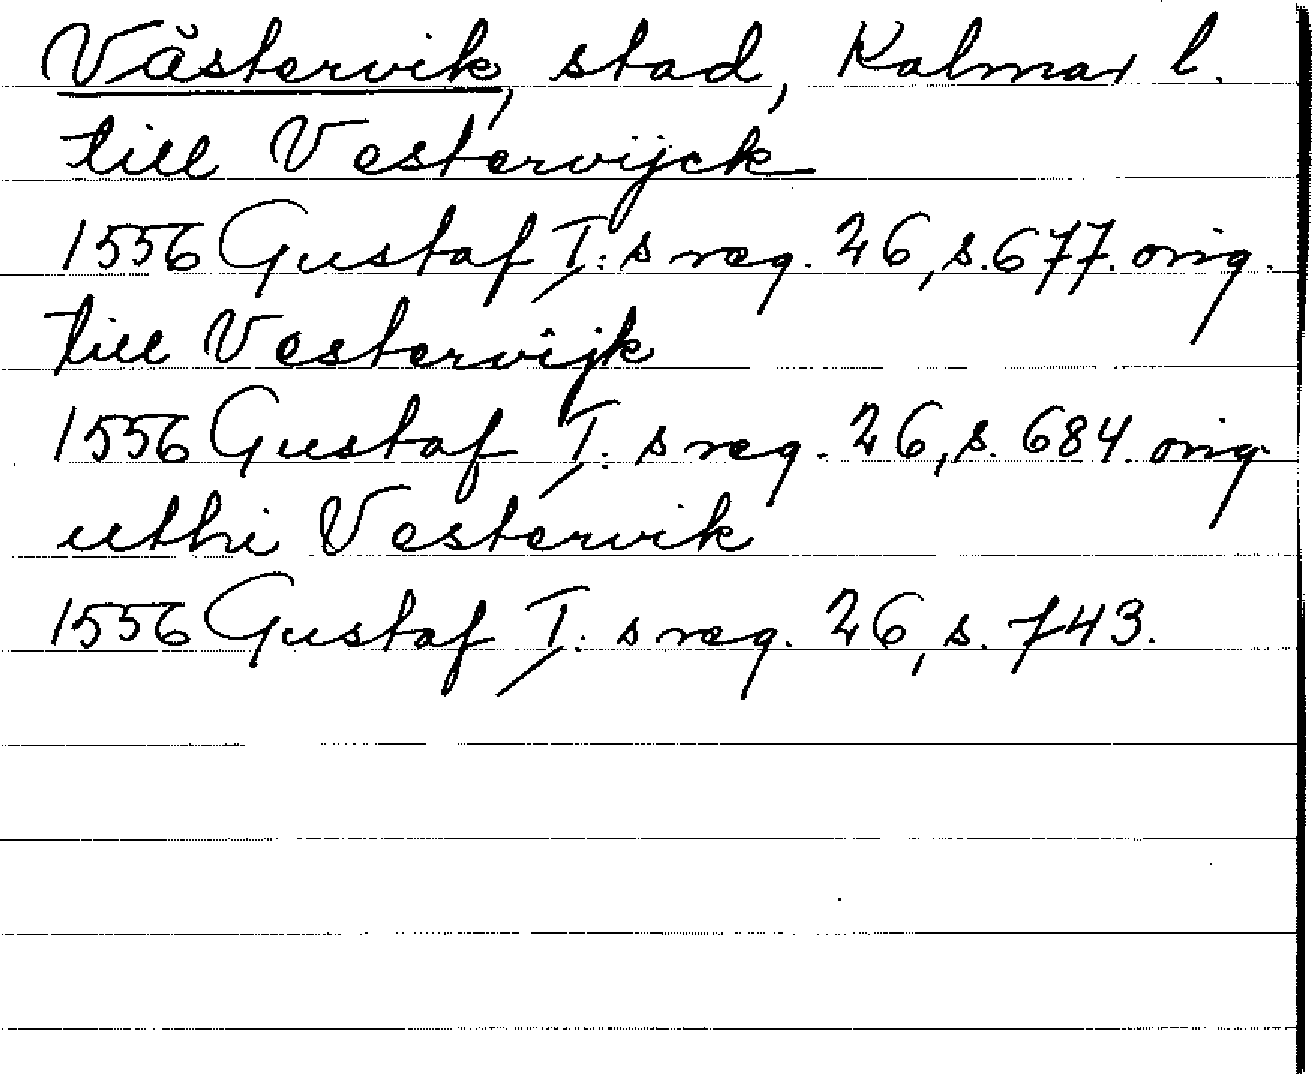 Västervik, stad, Kalmar l.
till Vestervijck
1556 Gustaf I:s reg. 26, s. 677. orig.
till Vestervijk
1556 Gustaf I:s reg. 26, s. 684. orig.
uthi Vestervik
1556 Gustaf I:s reg. 26, s. 743.